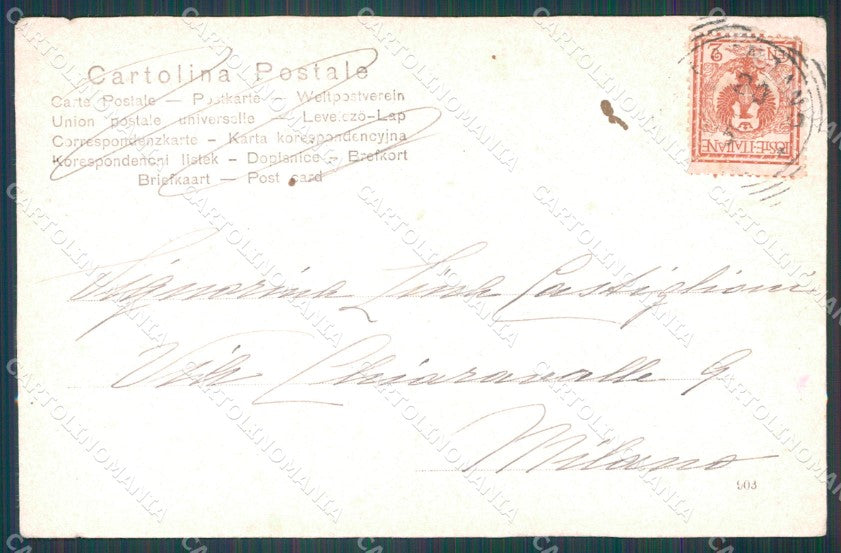 Cartolina Postale
Carte Postale — Postkarte — Weltpostverein
Union postale universelle — Levelező-Lap
Correspondenzkarte - Karta korespondencyjna
Korespondencni listek - Dopisnice - Brefkort
Briefkaart — Post card
CEN 2
POSTE·ITALIANE
Signorina Lina Castiglioni
Via Chiaravalle 9
Milano
903
CARTOLINOMANIA